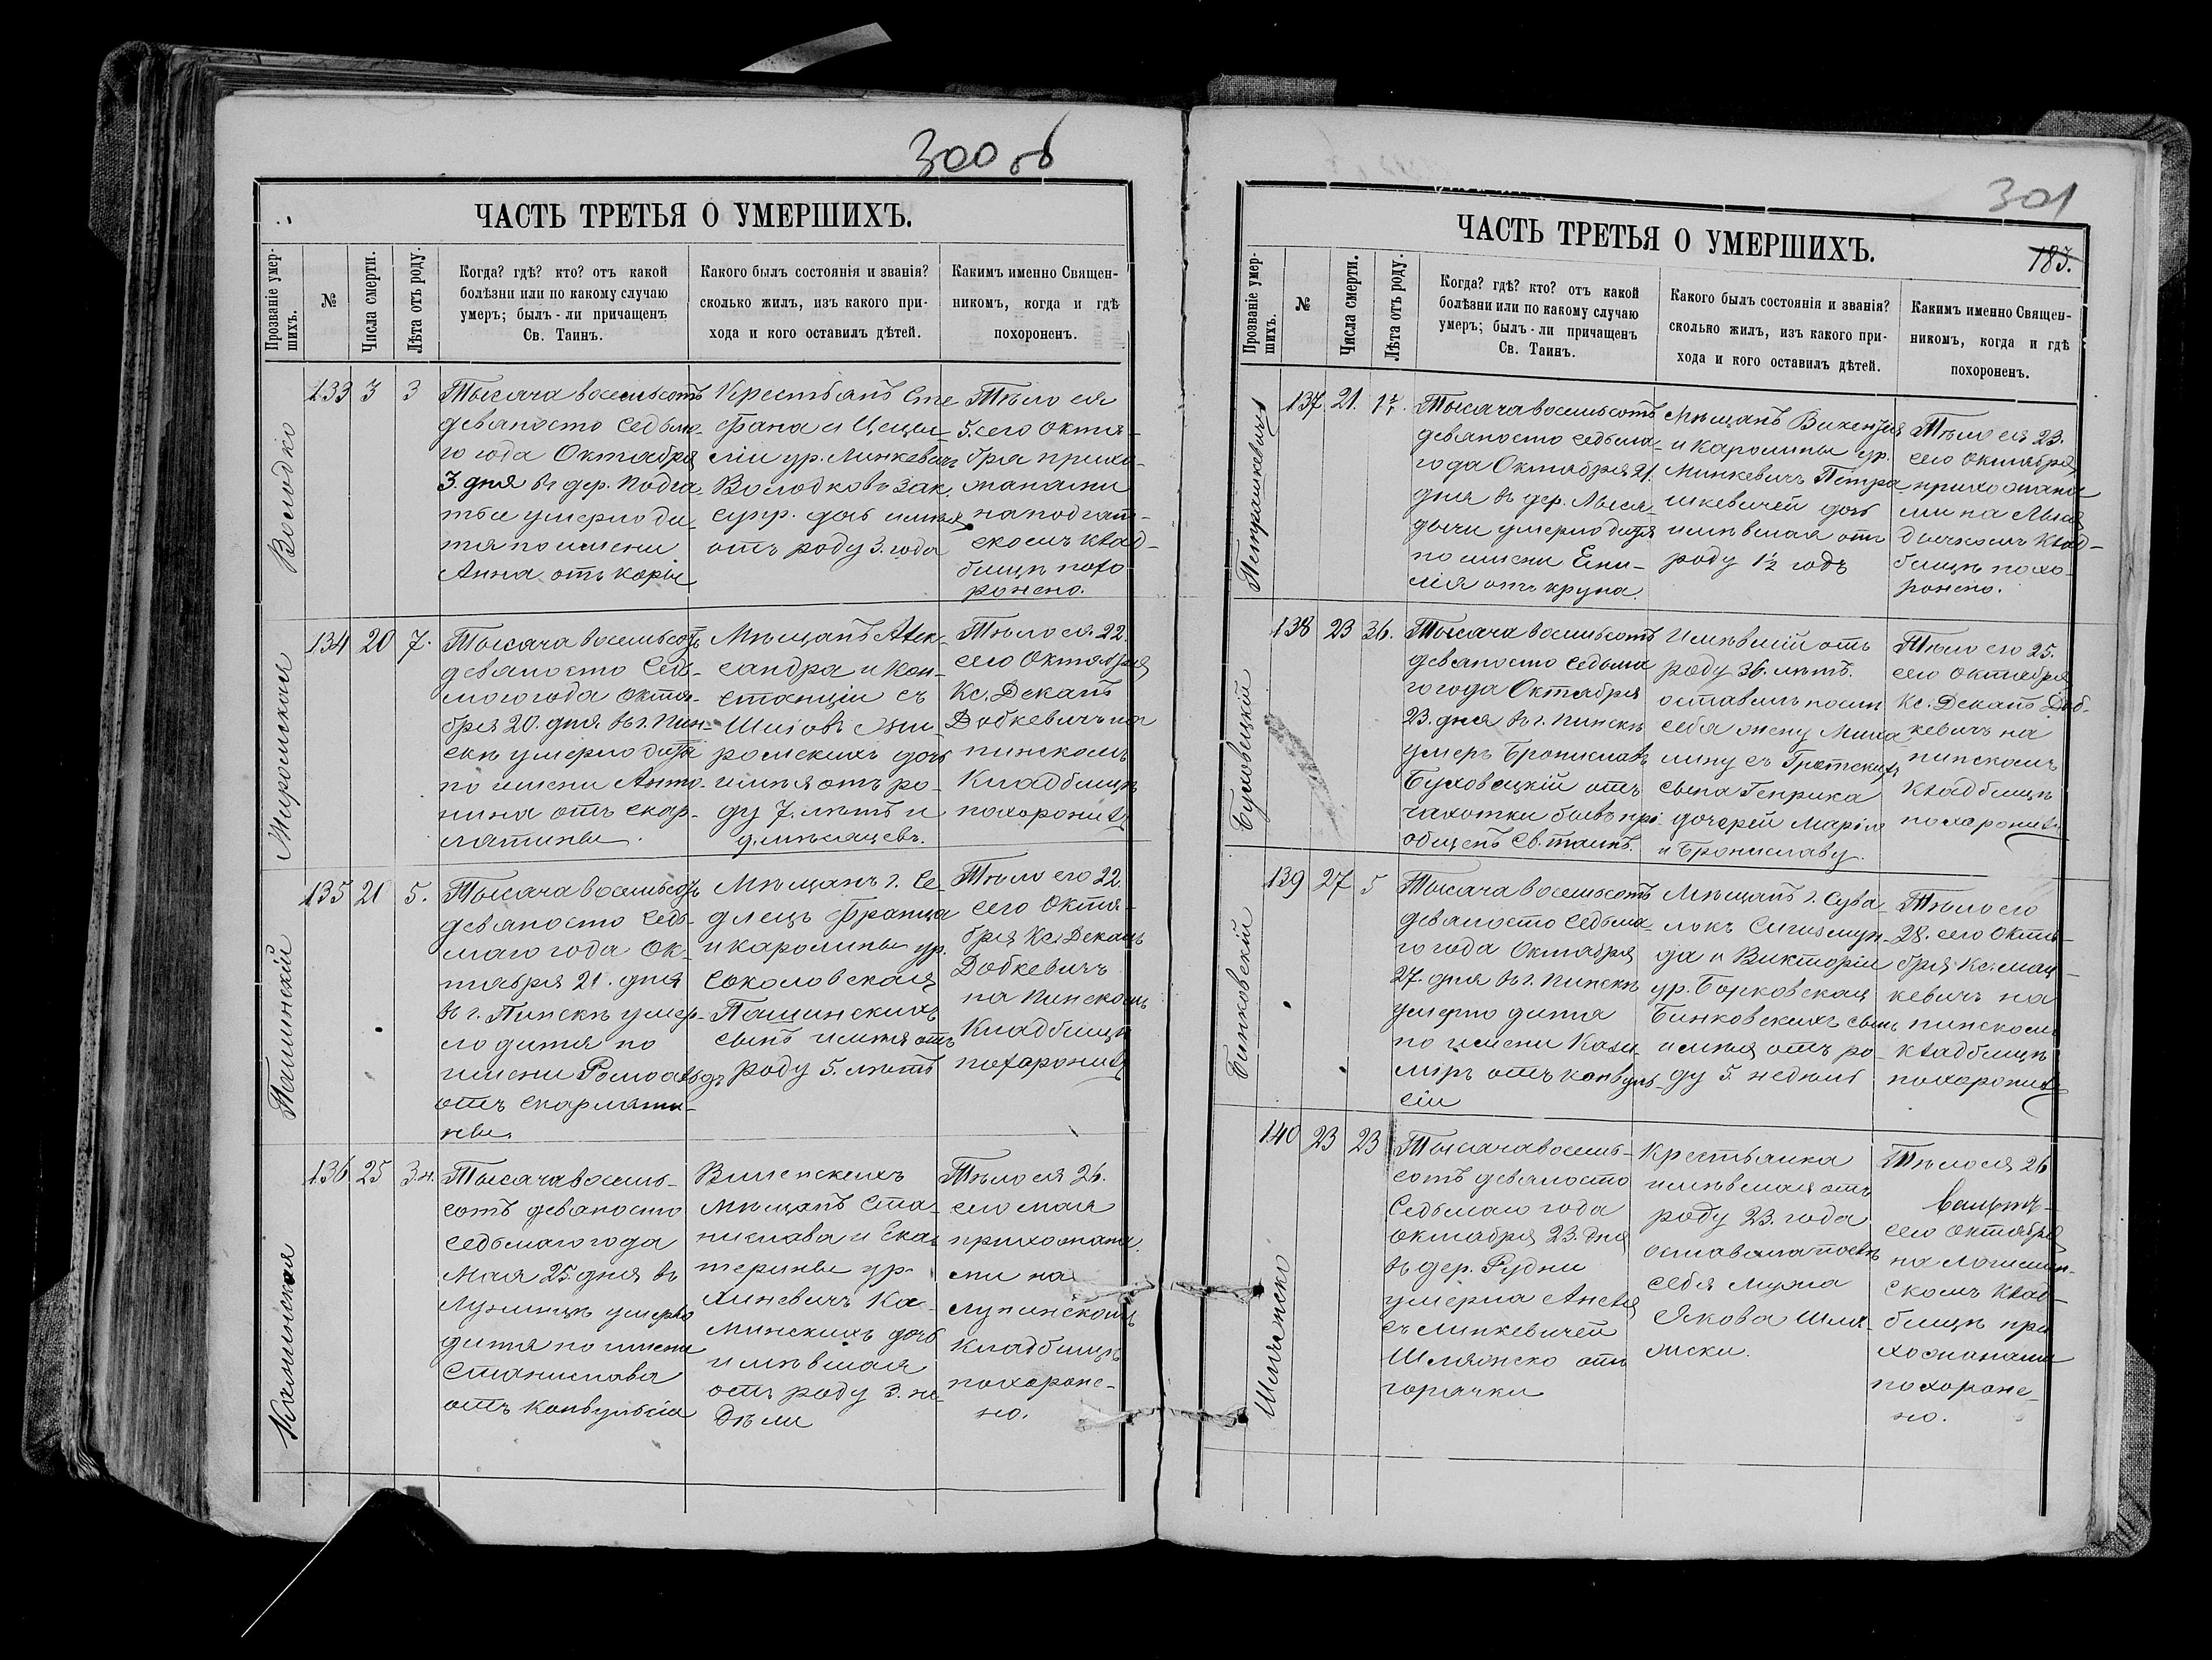 300 об
ЧАСТЬ ТРЕТЬЯ О УМЕРШИХЪ.
Прозваніе умер-
шихъ.
№
Числа смерти.
Лѣта отъ роду.
Когда? гдѣ? кто? отъ какой
болѣзни или по какому случаю
умеръ; былъ-ли причащенъ
Св. Таинъ.
Какого былъ состоянія и званія?
сколько жилъ, изъ какого при-
хода и кого оставилъ дѣтей.
Какимъ именно Священ-
никомъ, когда и гдѣ
похороненъ.
Володко
133
3
3
Тысяча восемьсотъ
девяносто седьма-
го года Октября
3. дня въ дер. Подга
тьи умерло ди-
тя по имени
Анна отъ коріи
Крестьянъ Сте
фана и Цеци-
ліи ур. Линкевичъ
Володковъ зак.
супр. дочь имѣя
отъ роду 3. года
Тѣло ея
5. сего Октя-
бря прихо-
жанами
на подгат-
скомъ клад-
бищѣ похо
ронено.
Жиромская
134
20
7.
Тысяча восемьсотъ
девяносто седь-
маго года Октя-
бря 20. дня въ г. Пин-
скѣ умерло дитя
по имени Анто-
нина отъ скар-
латины.
Мѣщанъ Алек-
сандра и Кон-
станціи съ
Жи-
ромскихъ дочь
имѣя отъ ро-
ду 7. лѣтъ и
мѣсяцевъ.
Тѣло ея 22.
сего Октября
Кс. Деканъ
Добкевичъ на
пинскомъ
Кладбищѣ
похоронилъ
Пашинскій
135
21
5.
Тысяча восемьсотъ
девяносто седь-
маго года Ок-
тября 21. дня
въ г. Пинскѣ умер-
ло дитя по
имени Ромоальдъ
отъ скарлати-
ны.
Мѣщанъ г. Се-
длецъ Франца
и каролины ур.
Соколовская
Пашинскихъ
сынъ имѣя отъ
роду 5. лѣтъ
Тѣло его 22.
сего Октя-
бря Кс. Деканъ
Добкевичъ
на Пинскомъ
Кладбищѣ
похоронилъ
Каминская
136
25
3.н.
Тысяча восемь-
сотъ девяносто
седьмаго года
Мая 25. дня въ
Лунинцѣ умерло
дитя по имени
Станислава
отъ конвульсіи
Виленскихъ
мѣщанъ Ста-
нислава и Ека-
терины ур.
Ка-
минскихъ дочь
имѣвшая
отъ роду 3. не-
дѣли
Тѣло ея 26.
сего мая
прихожана
ми на
лунинскомъ
Кладбищѣ
похороне-
но.
301
183.
ЧАСТЬ ТРЕТЬЯ О УМЕРШИХЪ.
Прозваніе умер-
шихъ.
№
Числа смерти.
Лѣта отъ роду.
Когда? гдѣ? кто? отъ какой
болѣзни или по какому случаю
умеръ; былъ-ли причащенъ
Св. Таинъ.
Какого былъ состоянія и званія?
сколько жилъ, изъ какого при-
хода и кого оставилъ дѣтей.
Какимъ именно Священ-
никомъ, когда и гдѣ
похороненъ.
Петрашкевичъ
137
21.
1½.
Тысяча восемьсотъ
девяносто седьма-
го года Октября 21.
дня въ дер.
умерло дитя
по имени Еми-
лія отъ крупа.
Мѣщанъ Викентія
и Каролины ур.
Минкевичъ Петра-
шкевичей дочь
имѣвшая отъ
роду 1½ годъ
Тѣло ея 23.
сего Октября
прихожана
ми на
клад-
бищѣ похо-
ронено.
Буховецкій
138
23
36.
Тысяча восемьсотъ
девяносто седьма
го года Октября
23. дня въ г. Пинскѣ
умеръ Брониславъ
Буховецкій отъ
чахотки бывъ прі-
общенъ Св. таинъ.
Имѣвшій отъ
роду 36. лѣтъ.
оставилъ послѣ
себя жену Миха
лину съ
сына Генриха
дочерей Марію
и Брониславу.
Тѣло его 25.
сего Октября
Кс. Деканъ Доб-
кевичъ на
пинскомъ
кладбищѣ
похоронилъ
Бинковскій
139
27
5
Тысяча восемьсотъ
девяносто седьма-
го года Октября
27. дня въ г. Пинскѣ
умерло дитя
по имени Кази-
міръ отъ конвуль-
сіи
Мѣщанъ г. Сува-
локъ Сигизмун-
да и Викторіи
ур. Борковская
Бинковскихъ сынъ
имѣя отъ ро-
ду 5. недѣль
Тѣло его
28. сего Октя-
бря Кс. Мац-
кевичъ на
пинскомъ
кладбищѣ
похоронилъ
Шляжско
140
23
23
Тысяча восемь-
сотъ девяносто
Седьмаго года
октября 23. дня
въ дер. Рудни
умерла Анеля
съ Линкевичей
Шляжско отъ
горячки
Крестьянка
имѣвшая отъ
роду 23. года
оставила послѣ
себя мужа
Якова Шля-
жски.
Тѣло ея 26
сего Октября
на логишин-
скомъ клад-
бищѣ при
хожанами
похороне-
но.